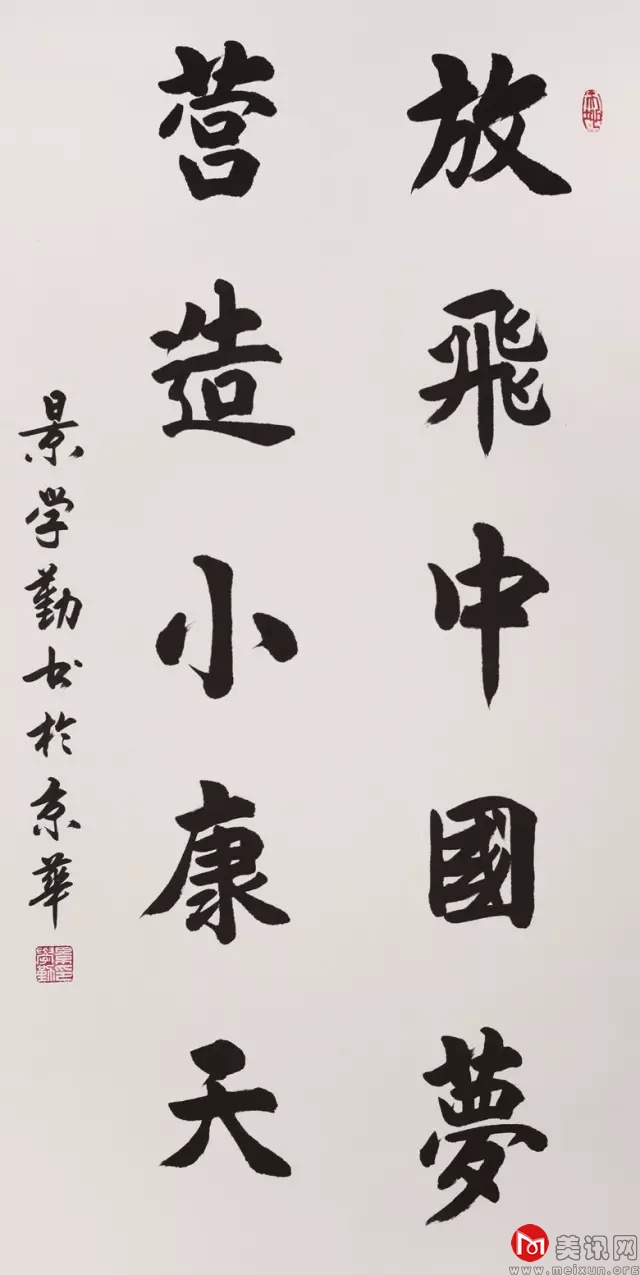 放飛中國夢
营造小康天
景学勤书於京華
美讯网
www.meixun.org